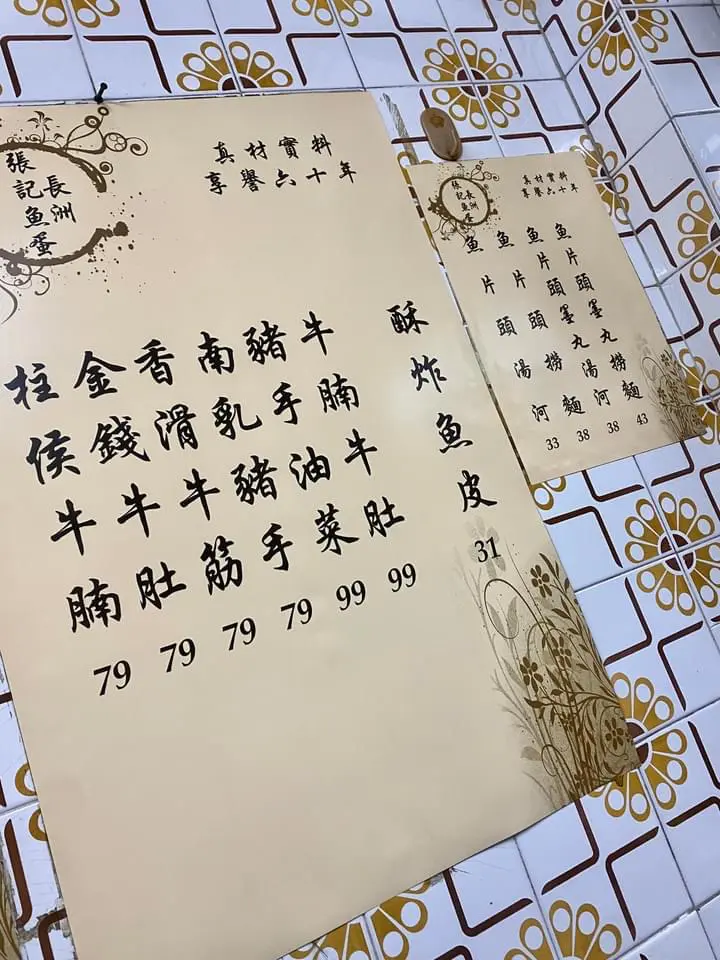 長洲
張記魚蛋
真材實料
享譽六十年
酥炸魚皮 31
牛腩牛肚 99
豬手油菜 99
南乳豬手 79
香滑牛筋 79
金錢牛肚 79
柱侯牛腩 79
長洲
張記魚蛋
真材實料
享譽六十年
魚片頭墨丸撈麵 43
魚片頭墨丸湯河 38
魚片頭撈麵 38
魚片頭湯河 33